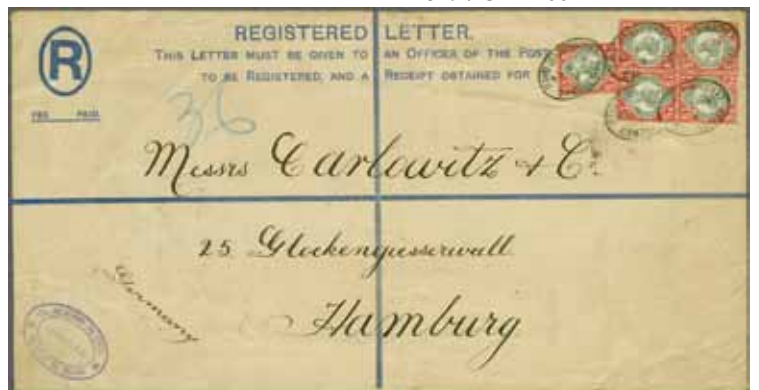 REGISTERED LETTER.
THIS LETTER MUST BE GIVEN TO AN OFFICER OF THE POST
TO BE REGISTERED, AND A RECEIPT OBTAINED FOR
R
FEE PAID.
36
Messrs Carlowitz & C.
25 Glockengiesserwall
Germany
Hamburg